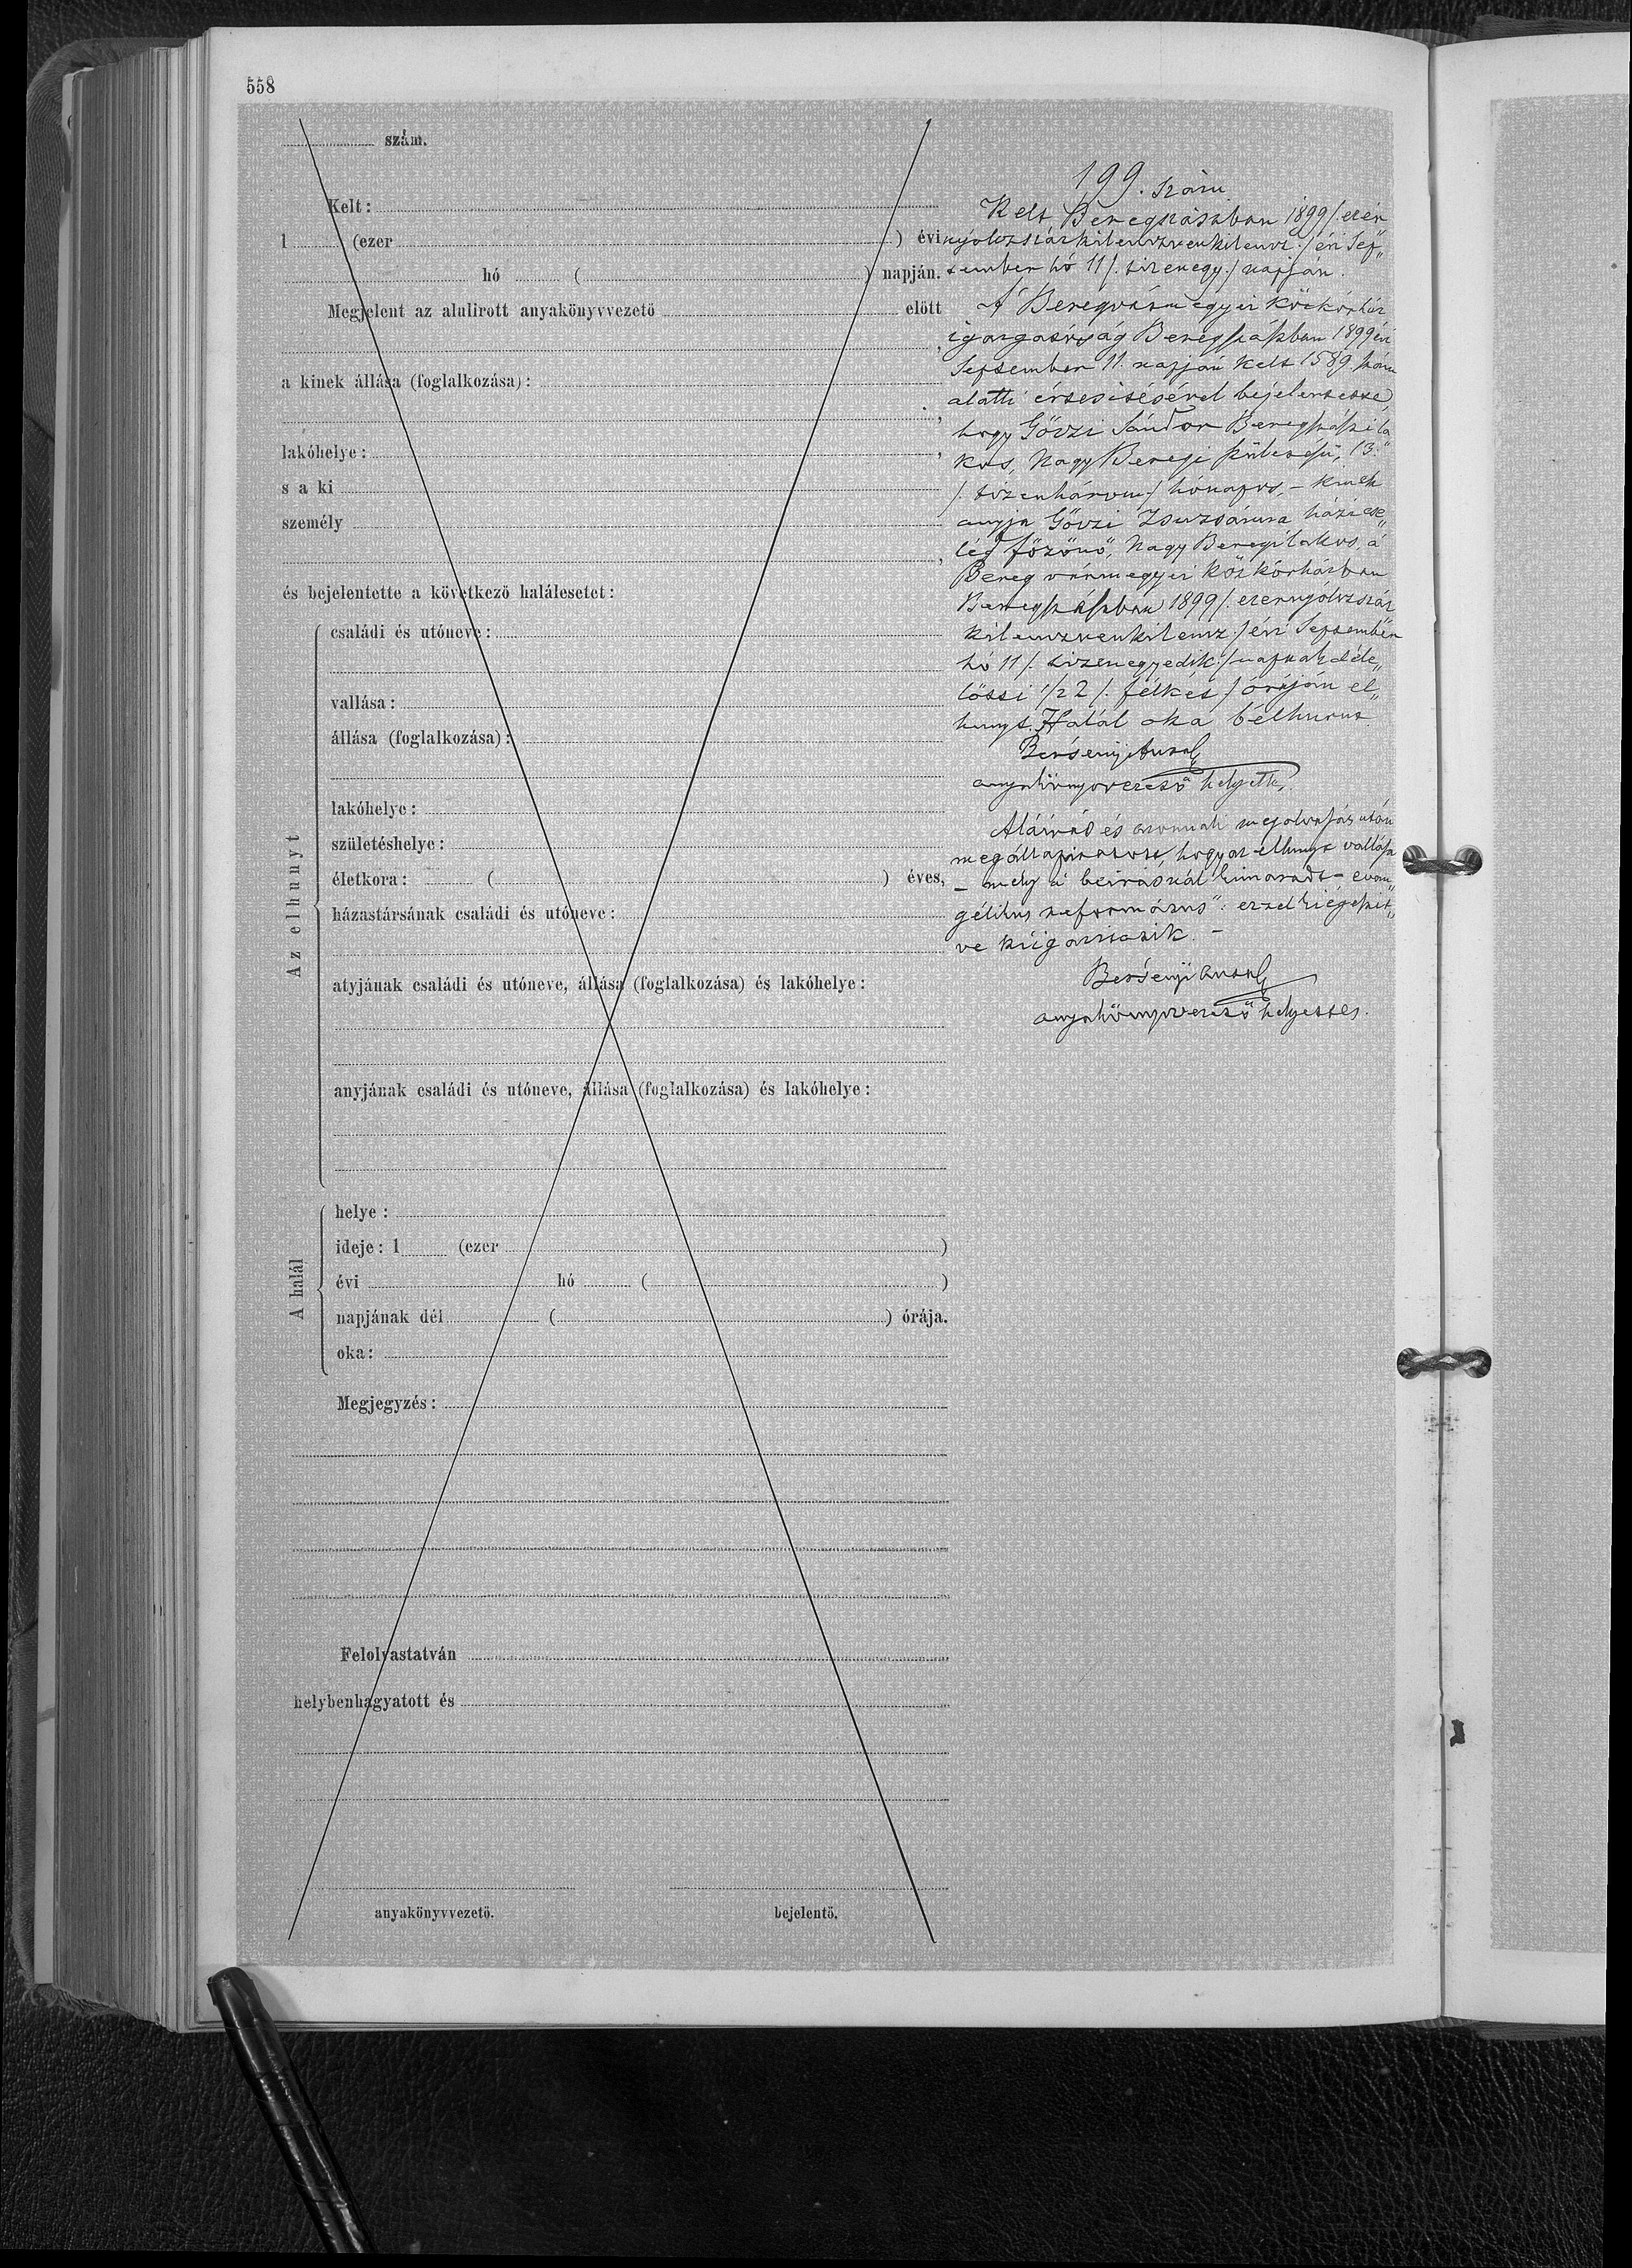 558
szám.
Kelt:
1 (ezer ) évi
hó ( ) napján.
Megjelent az alulirott anyakönyvvezető előtt
,
a kinek állása (foglalkozása):
,
lakóhelye: ,
s a ki
személy
,
és bejelentette a következő halálesetet:
Az elhunyt
családi és utóneve:
vallása:
állása (foglalkozása):
lakóhelye:
születéshelye:
életkora: ( ) éves,
házastársának családi és utóneve:
atyjának családi és utóneve, állása (foglalkozása) és lakóhelye:
anyjának családi és utóneve, állása (foglalkozása) és lakóhelye:
A halál
helye:
ideje: 1 (ezer )
évi hó ( )
napjának dél ( ) órája.
oka:
Megjegyzés:
Felolvastatván
helybenhagyatott és
anyakönyvvezető.
bejelentő.
199. szám
Kelt Beregszászban 1899 /. ezer
nyolczszázkilenczvenkilencz ./ évi Sep„
tember hó 11 /. tizenegy ./ napján.
A Beregvármegyei közkórház
igazgatóság Beregszászban 1899 évi
September 11. napján kelt 1589. szám
alatti értesítésével bejelentette,
hogy Gőczi Sándor Beregszászi la
kos, Nagy Beregi születésű, 13.
/. tizenhárom ./ hónapos, – kinek
anyja Gőczi Zsuzsánna házi cse„
léd főzőnő, Nagy Beregi lakos, a
Bereg vármegyei közkórházban
Beregszászban 1899 /. ezernyolczszáz
kilenczvenkilencz ./ évi September
hó 11 /. tizenegyedik ./ napnak déle„
lőtti 1/2 2 /. félkét ./ óráján el„
hunyt. Halál oka bélhurut
Bersenyi Antal
anyakönyvvezető helyettes.
Aláírás és azonnali megolvasás után
megállapíttatott, hogy az elhunyt vallása
– mely a beírásnál kimaradt – evan„
gélikus református": ezzel kiegészít„
ve kiigazíttatik. –
Bersenyi Antal
anyakönyvvezető helyettes.